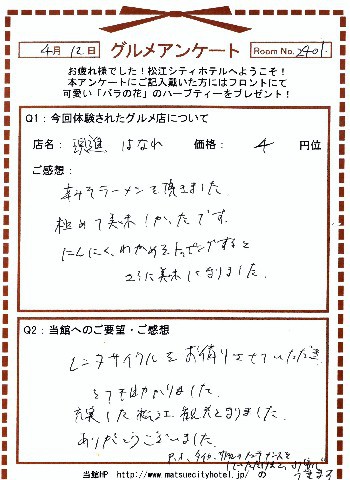 4月12日 グルメアンケート Room No. 2401.
お疲れ様でした！松江シティホテルへようこそ！
本アンケートにご記入戴いた方にはフロントにて
可愛い「バラの花」のハーブティーをプレゼント！
Q1：今回体験されたグルメ店について
店名： はなれ 価格： 4 円位
ご感想：
辛みそラーメンを頂きました。
極めて美味しかったです。
にんにく、わかめをトッピングすると
さらに美味になりました。
Q2：当館へのご要望・ご感想
レンタサイクルをお借りさせていただき
とても助かりました。
充実した松江観光となりました。
ありがとうございました。
P.S. タイヤ、
当館HP http://www.matsuecityhotel.jp/ の